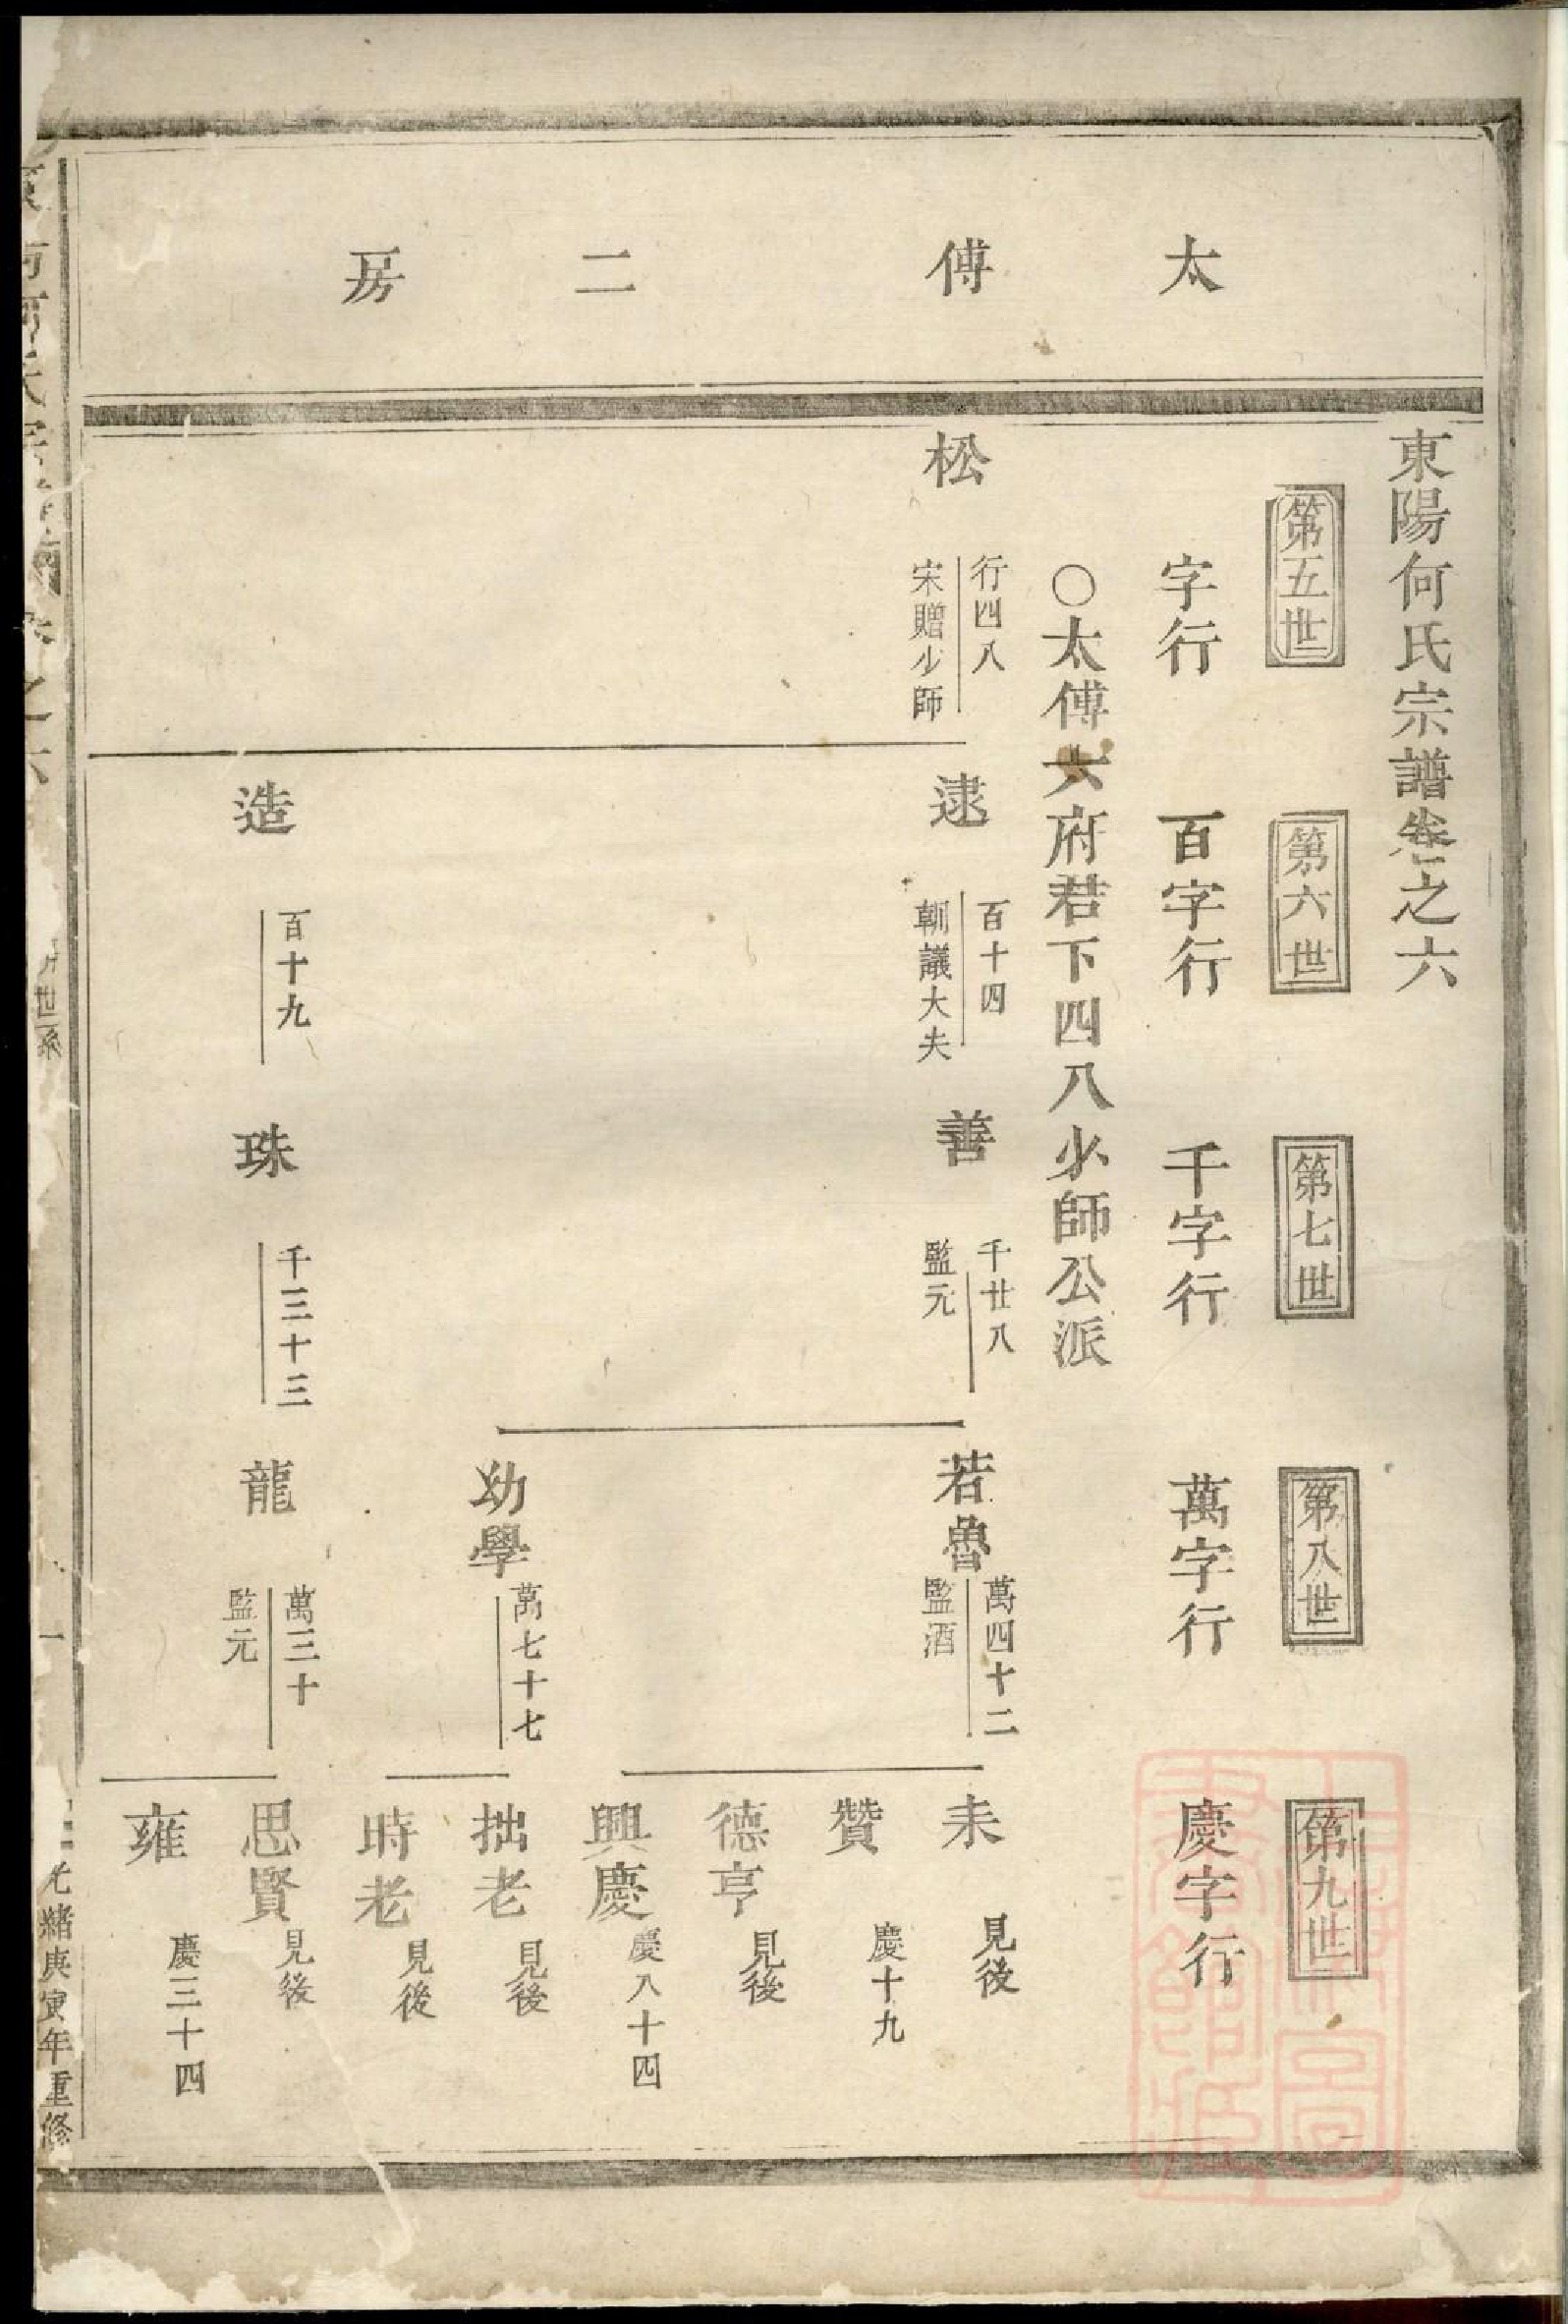 太傅二房
東陽何氏宗譜卷之六
第五世
第六世
第七世
第八世
第九世
字行
百字行
千字行
萬字行
慶字行
○太傅六府君下四八少師公派
松
行四八
宋贈少師
逮
百十四
朝議大夫
善
千廿八
監元
若魯
萬四十二
監酒
耒
見後
贊
慶十九
德亨
見後
興慶
慶八十四
幼學
萬七十七
拙老
見後
時老
見後
造
百十九
珠
千三十三
龍
萬三十
監元
思賢
見後
雍
慶三十四
之六
世系
一
光緒庚寅年重修